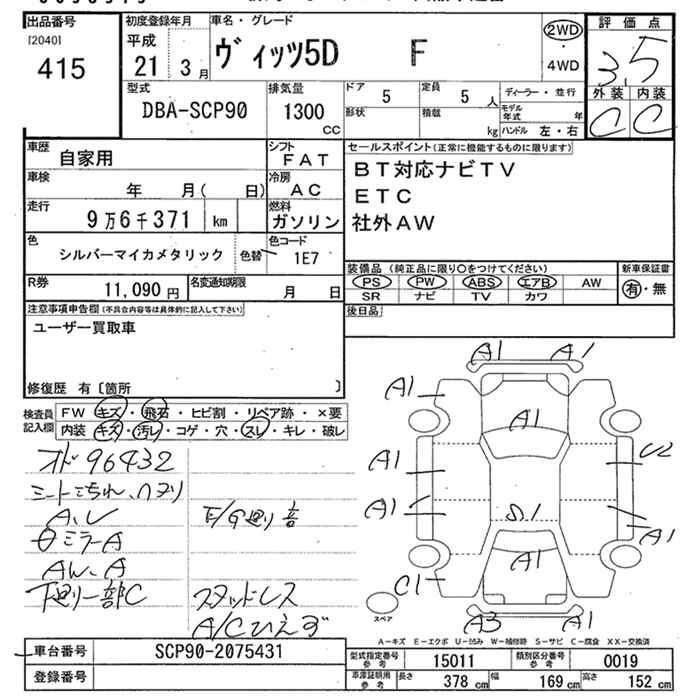 出品番号
[2040]
415
初度登録年月
平成
21 3月
車名・グレード
ヴィッツ5D F
2WD
4WD
評価点
3.5
外装 内装
C C
型式
DBA-SCP90
排気量
1300
CC
ドア
5
定員
5 人
形状
積載
kg
ディーラー・並行
モデル年式 年
ハンドル 左・右
車歴
自家用
シフト
FAT
車検
年 月( 日)
冷房
AC
走行
9万6千371 km
燃料
ガソリン
色
シルバーマイカメタリック
色替
色コード
1E7
R券
11,090円
名変通知期限
月 日
セールスポイント(正常に機能するものに限ります)
BT対応ナビTV
ETC
社外AW
装備品(純正品に限り〇をつけてください)
PS PW ABS エアB AW
SR ナビ TV カワ
新車保証書
有・無
後日品
注意事項申告欄(不具合内容等は具体的に記入して下さい)
ユーザー買取車
修復歴 有〔箇所 〕
検査員記入欄
FW キズ・飛石・ヒビ割・リペア跡・×要
内装 キズ・汚レ・コゲ・穴・スレ・キレ・破レ
96432
A、U
ミラーA
AW、A
下廻り一部C
E/G廻り音
スタッドレス
A/Cひえず
A1 A1
A1
A1
A1
U2
A1
S1
A1
A1
C1
A3 A1
スペア
A－キズ E－エクボ U－凹み W－補修跡 S－サビ C－腐食 XX－交換済
車台番号
SCP90-2075431
登録番号
型式指定番号参考
15011
類別区分番号参考
0019
車庫証明用参考
長さ 378 cm
幅 169 cm
高さ 152 cm